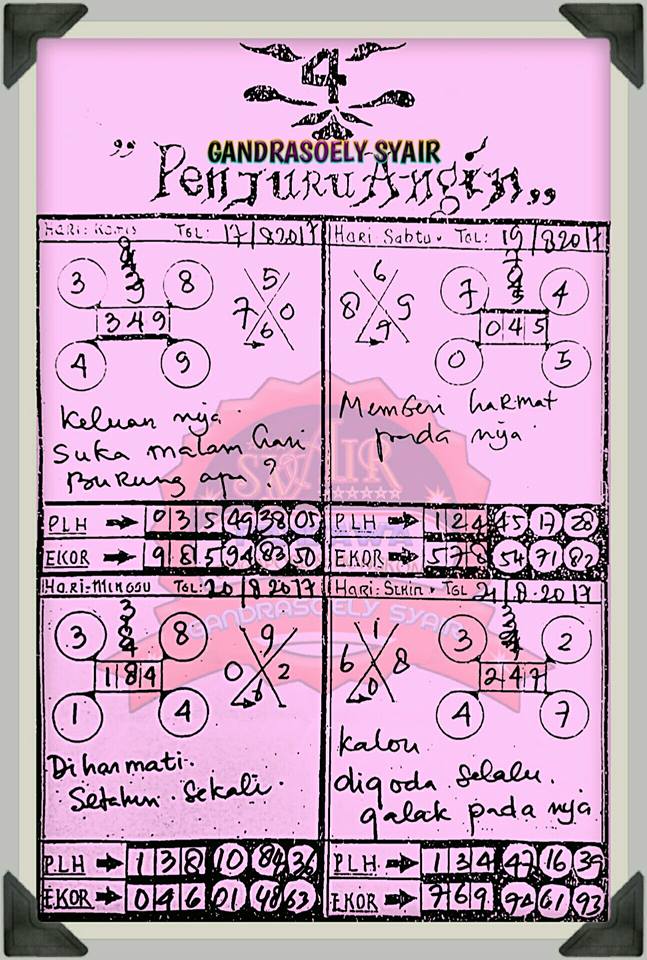 4
GANDRASOELY SYAIR
"Penjuru Angin"
Hari: Kamis TGL: 17/82017
3 8
3 4 9
4 9
5
7 0
6
Keluan nya
Suka malam hari
Burung apa?
PLH 0 3 5 49 38 05
EKOR 9 8 5 94 83 50
Hari Sabtu. TGL: 19/82017
6
8 9
9
7 4
0 4 5
0 5
Memberi harmat
pada nya
PLH 1 2 4 45 17 28
EKOR 5 7 8 54 71 82
Hari: Minggu TGL: 20/82017
3 8
1 8 4
1 4
9
0 2
6
Diharmati.
Setahun. Sekali.
PLH 1 3 8 10 84 36
EKOR 0 4 6 01 48 63
Hari: Senin. TGL 21/8.2017
1
6 8
0
3 2
2 4 7
4 7
kalou
digoda Selalu.
galak pada nya
PLH 1 3 4 47 16 39
EKOR 7 6 9 94 61 93
SYAIR
GANDRASOELY SYAIR